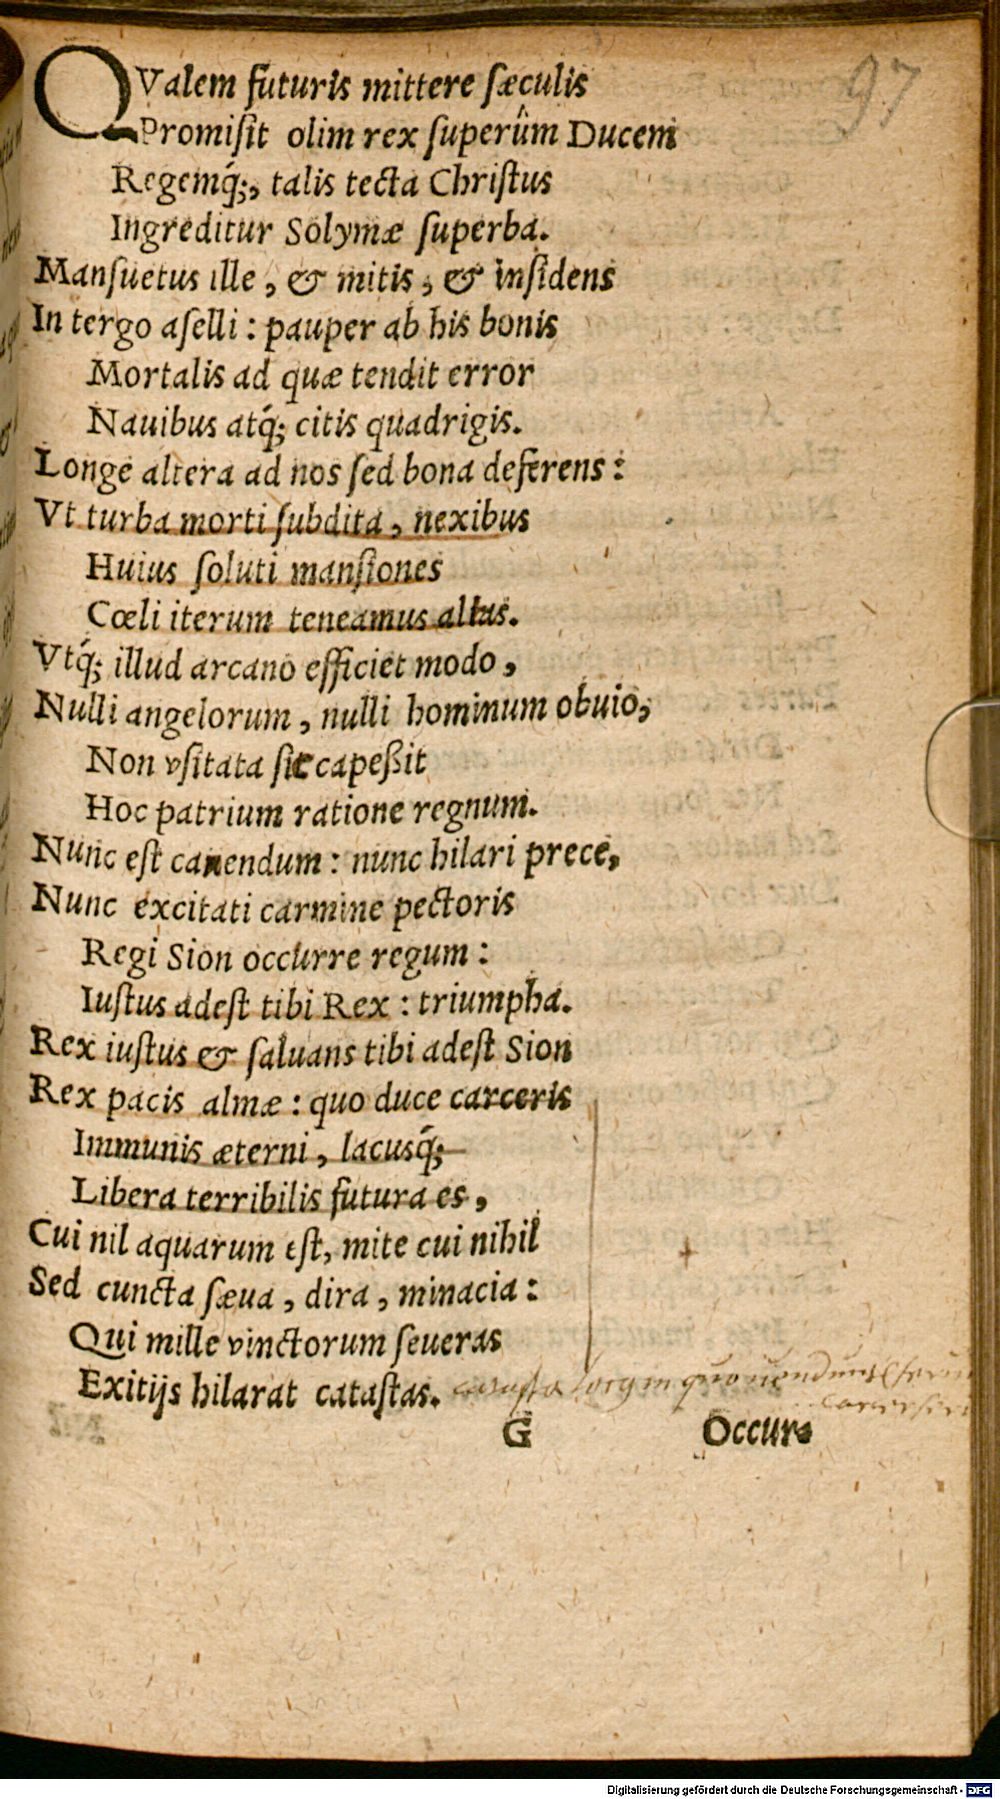 97
QValem futuris mittere sæculis
Promisit olim rex superûm Ducem
Regemq́;, talis tecta Christus
Ingreditur Solymæ superba.
Mansuetus ille, & mitis, & insidens
In tergo aselli: pauper ab his bonis
Mortalis ad quæ tendit error
Nauibus atq́; citis quadrigis.
Longe altera ad nos sed bona deferens:
Vt turba morti subdita, nexibus
Huius soluti mansiones
Cœli iterum teneamus altas.
Vtq́; illud arcano efficiet modo,
Nulli angelorum, nulli hominum obuio,
Non vsitata sic capeßit
Hoc patrium ratione regnum.
Nunc est canendum: nunc hilari prece,
Nunc excitati carmine pectoris
Regi Sion occurre regum:
Iustus adest tibi Rex: triumpha.
Rex iustus & saluans tibi adest Sion
Rex pacis almæ: quo duce carceris
Immunis æterni, lacusq́;
Libera terribilis futura es,
Cui nil aquarum est, mite cui nihil
Sed cuncta sæua, dira, minacia:
Qui mille vinctorum seueras
Exitijs hilarat catastas.
G Occur-
Digitalisierung gefördert durch die Deutsche Forschungsgemeinschaft - DFG